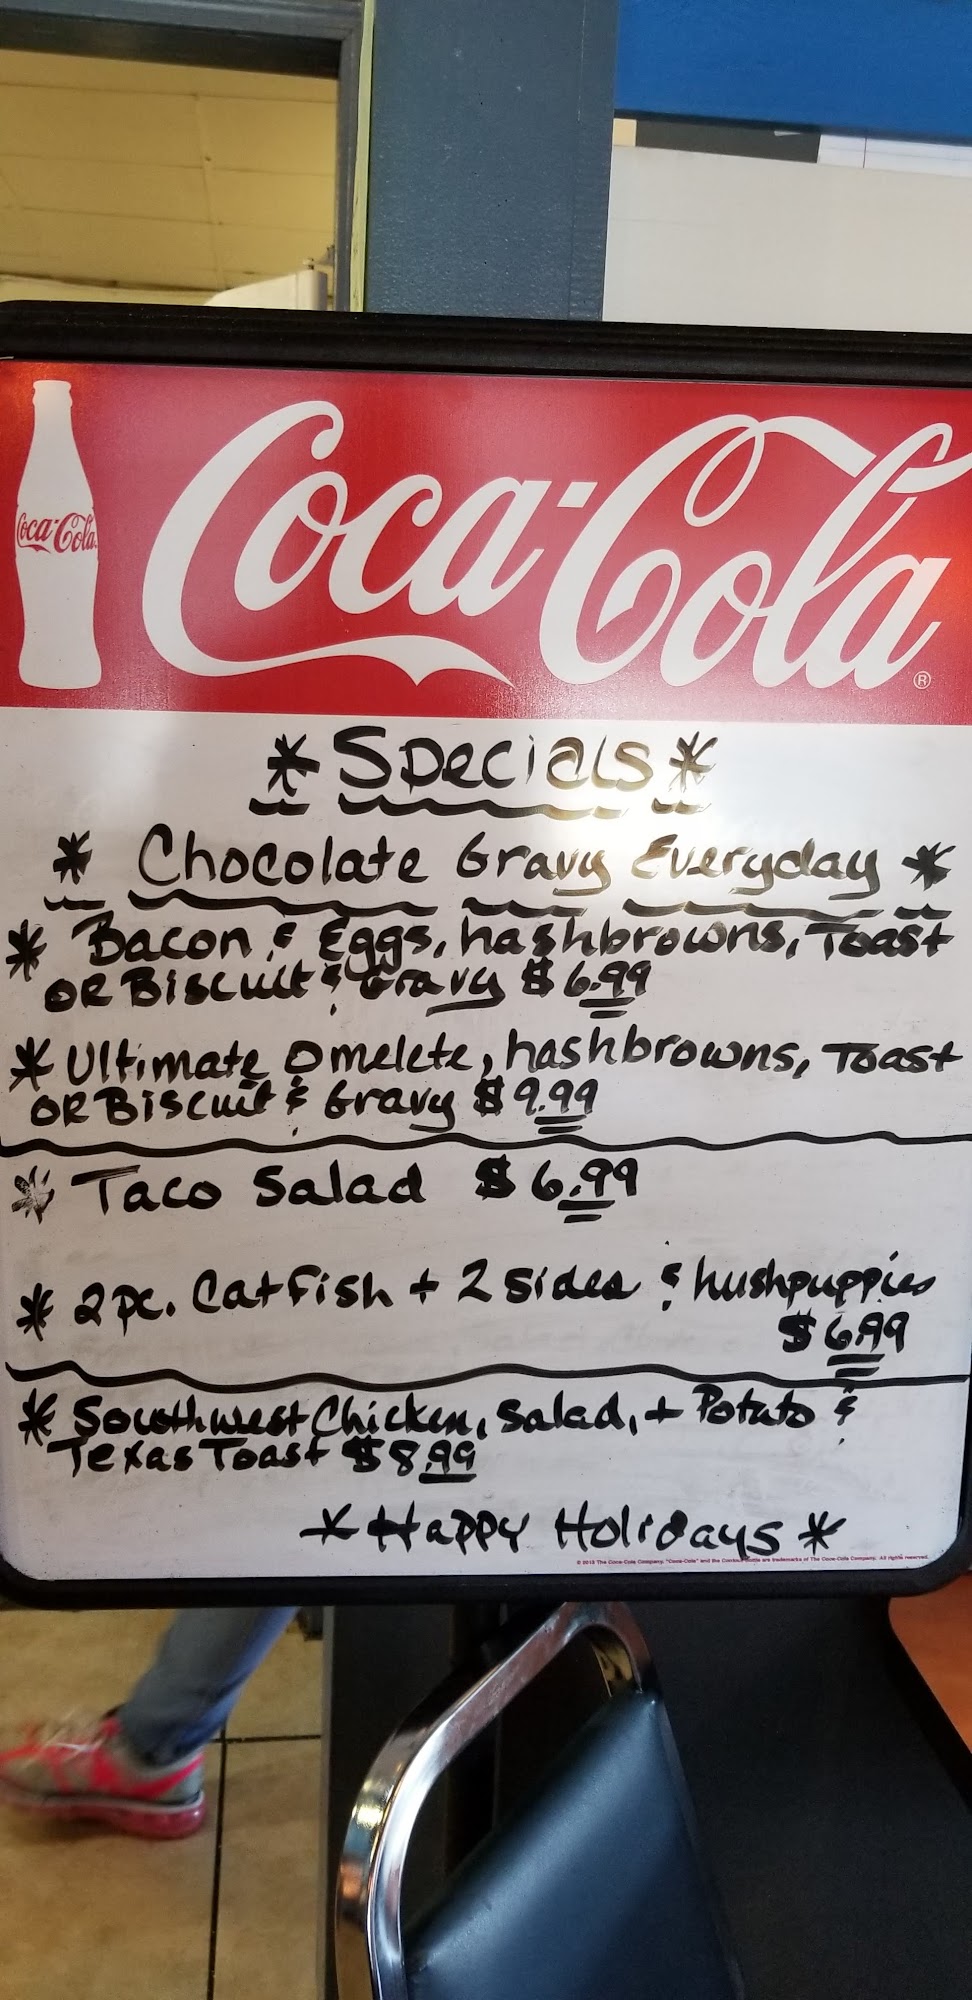 Coca-Cola
Coca-Cola ®
* Specials *
* Chocolate Gravy Everyday *
* Bacon & Eggs, hashbrowns, Toast
OR Biscuit & Gravy $6.99
* Ultimate Omelete, hashbrowns, Toast
OR Biscuit & Gravy $9.99
* Taco Salad $6.99
* 2 pc. Catfish + 2 sides & hushpuppies
$6.99
* Southwest Chicken, Salad, + Potato &
Texas Toast $8.99
* Happy Holidays *
© 2013 The Coca-Cola Company. "Coca-Cola" and the Contour Bottle are trademarks of The Coca-Cola Company. All rights reserved.